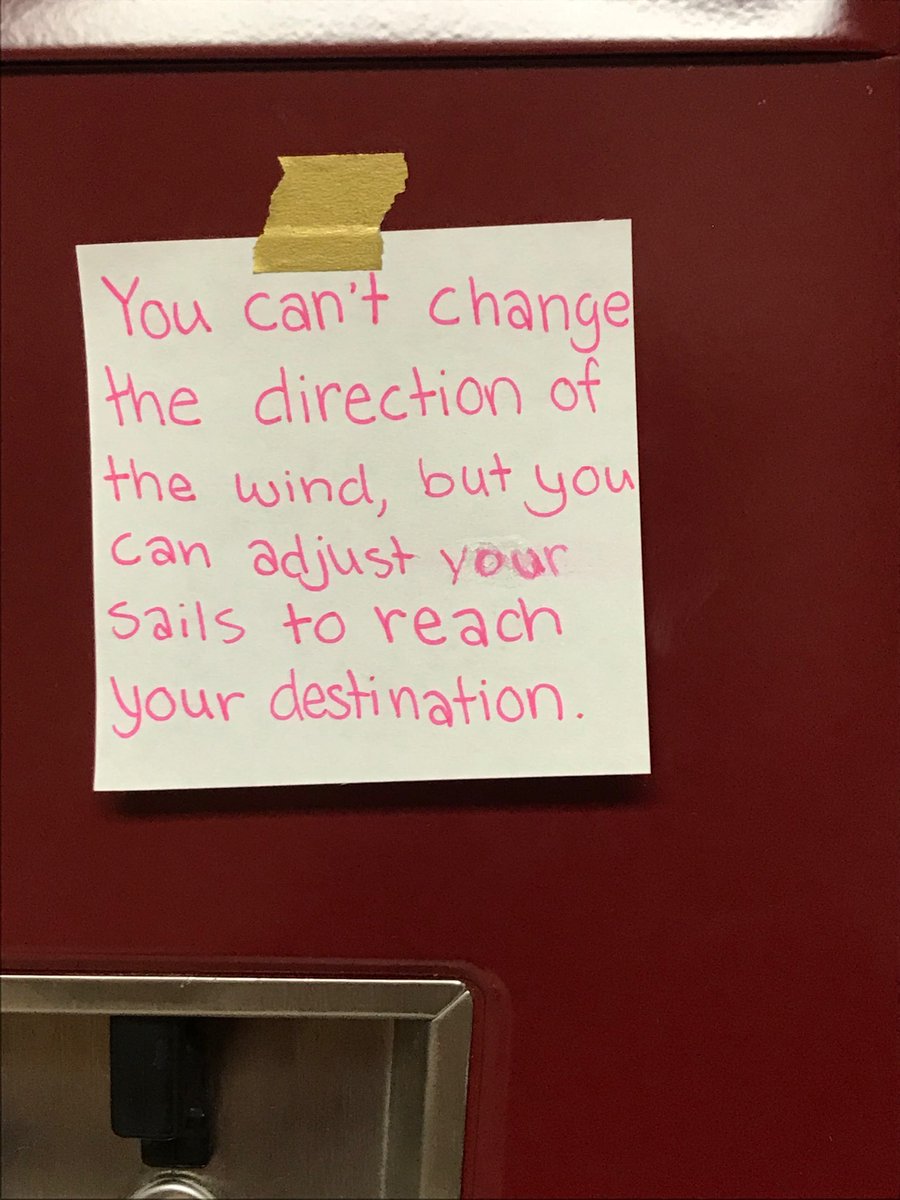 You can't change
the direction of
the wind, but you
can adjust your
sails to reach
your destination.